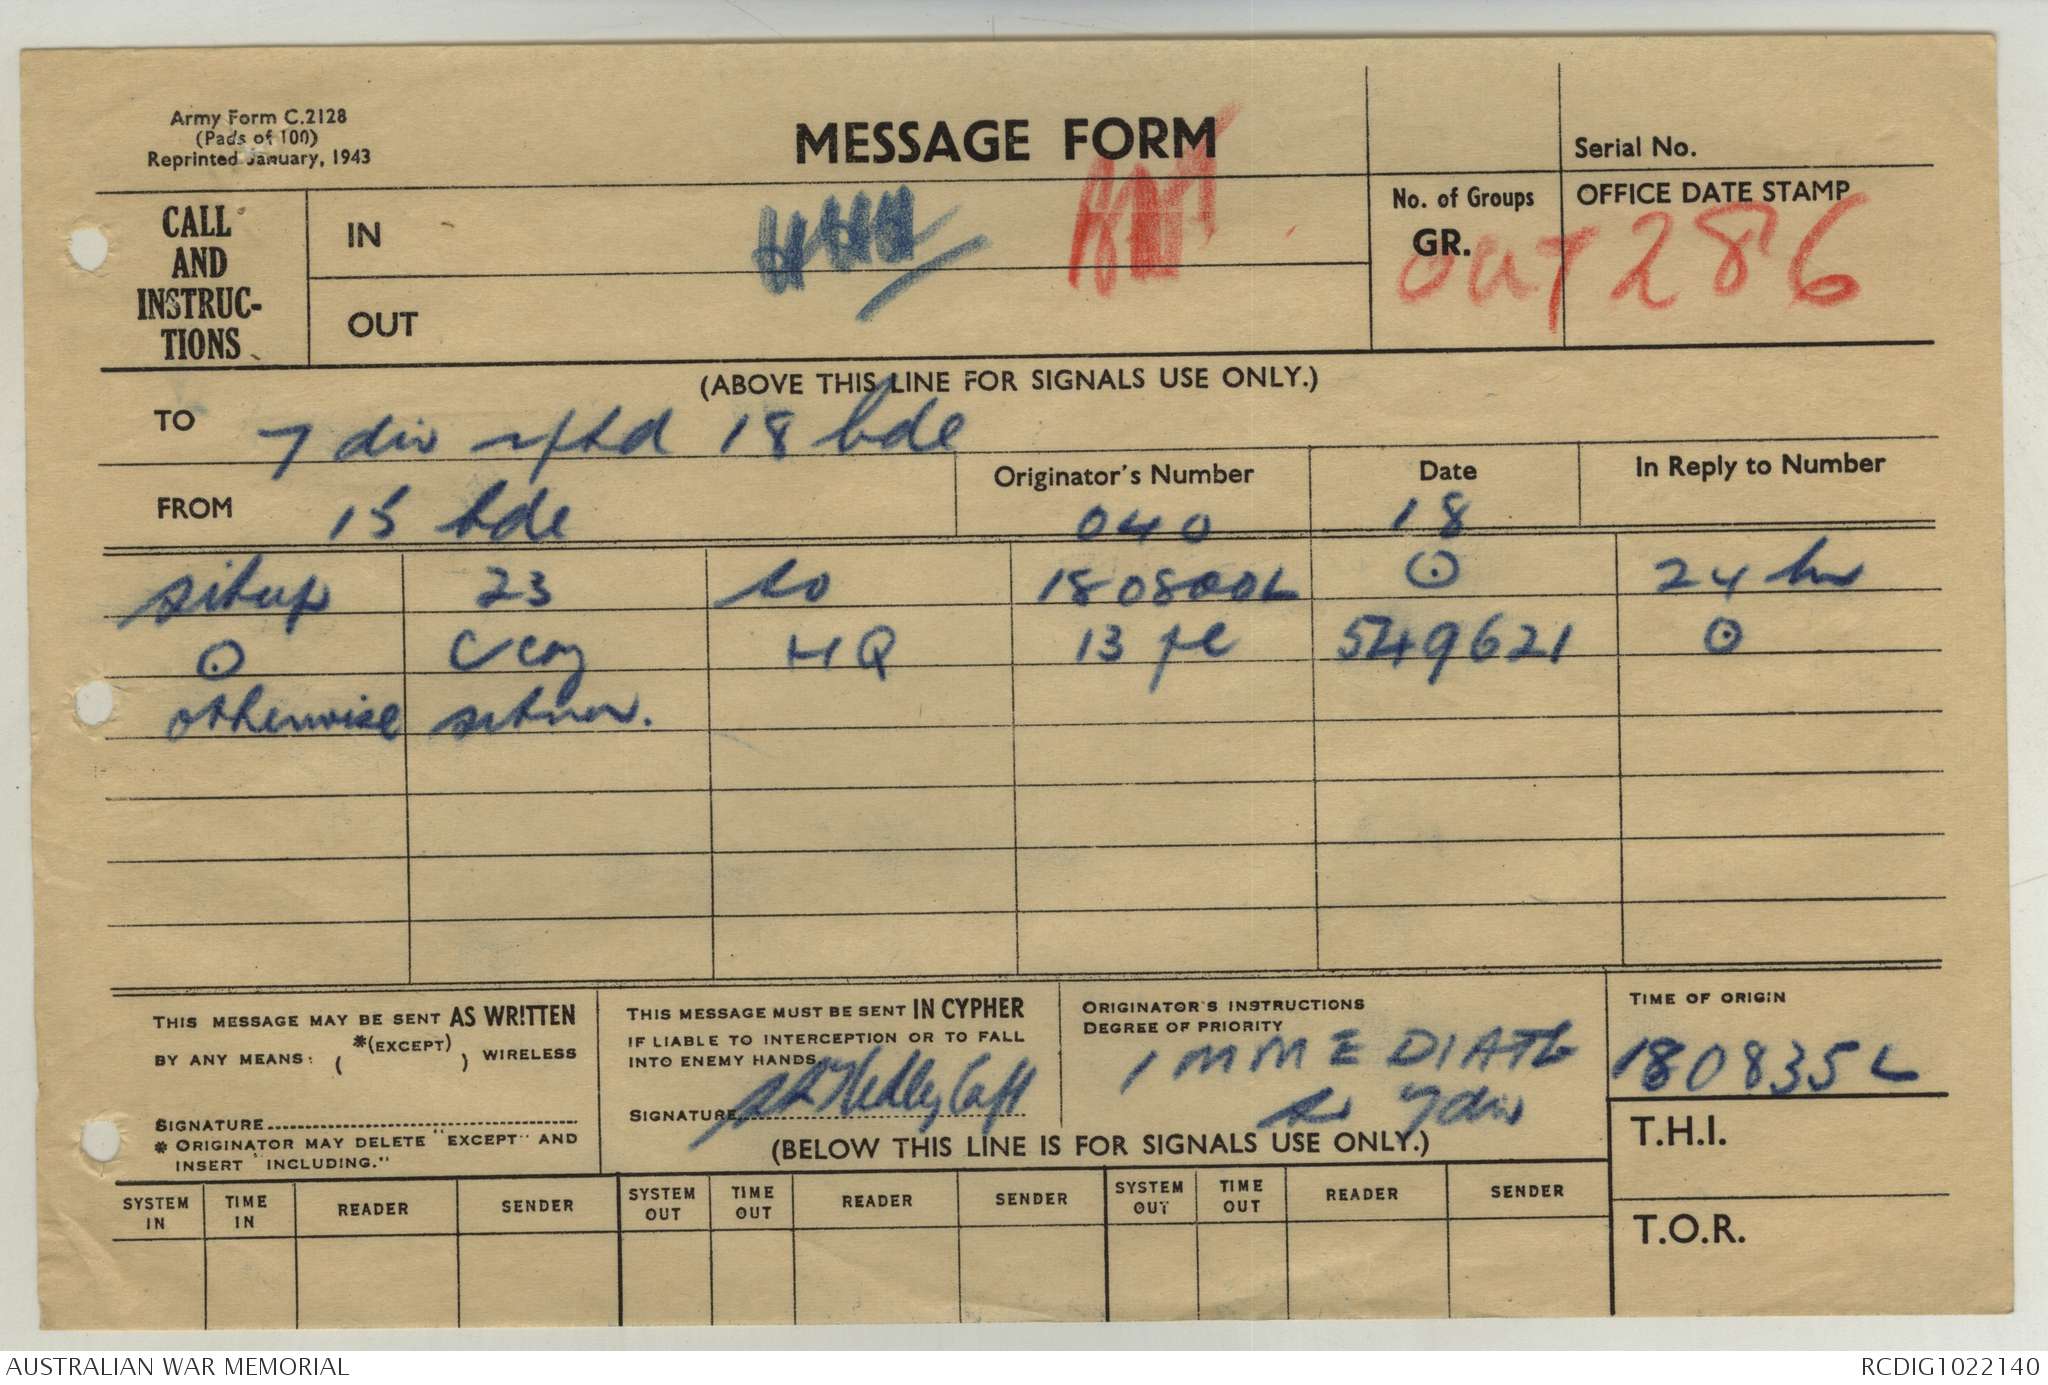 Army Form C.2128
(Pads of 100)
Reprinted January, 1943
MESSAGE FORM
Serial No.
CALL AND INSTRUC-TIONS
IN
OUT
No. of Groups
GR.
OFFICE DATE STAMP
OUT 286
(ABOVE THIS LINE FOR SIGNALS USE ONLY.)
TO 7 div rptd 18 bde
FROM 15 bde
Originator's Number 040
Date 18
In Reply to Number
sitrep 23 to 180800L ⊙ 24 hr
⊙ C coy HQ 13 pl 549621 ⊙
otherwise sitnor.
THIS MESSAGE MAY BE SENT AS WRITTEN
BY ANY MEANS: ( *(EXCEPT) ) WIRELESS
SIGNATURE
* ORIGINATOR MAY DELETE "EXCEPT" AND
INSERT "INCLUDING."
THIS MESSAGE MUST BE SENT IN CYPHER
IF LIABLE TO INTERCEPTION OR TO FALL
INTO ENEMY HANDS
SIGNATURE Hedley Capt
ORIGINATOR'S INSTRUCTIONS
DEGREE OF PRIORITY
IMMEDIATE
to 7 div
TIME OF ORIGIN
180835L
T.H.I.
T.O.R.
(BELOW THIS LINE IS FOR SIGNALS USE ONLY.)
SYSTEM IN TIME IN READER SENDER SYSTEM OUT TIME OUT READER SENDER SYSTEM OUT TIME OUT READER SENDER
AUSTRALIAN WAR MEMORIAL
RCDIG1022140